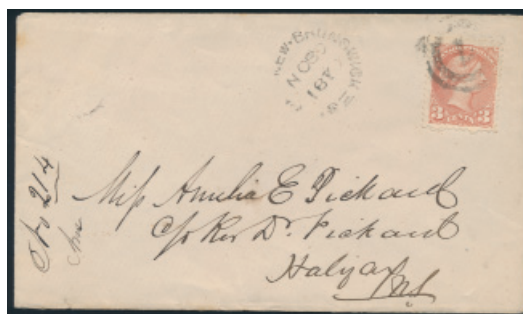 NEW-BRUNSWICK
NO 30
187
3 CENTS 3
No 214
Miss Amelia E Pickard
c/o Rev Dr. Pickard
Halifax
NS